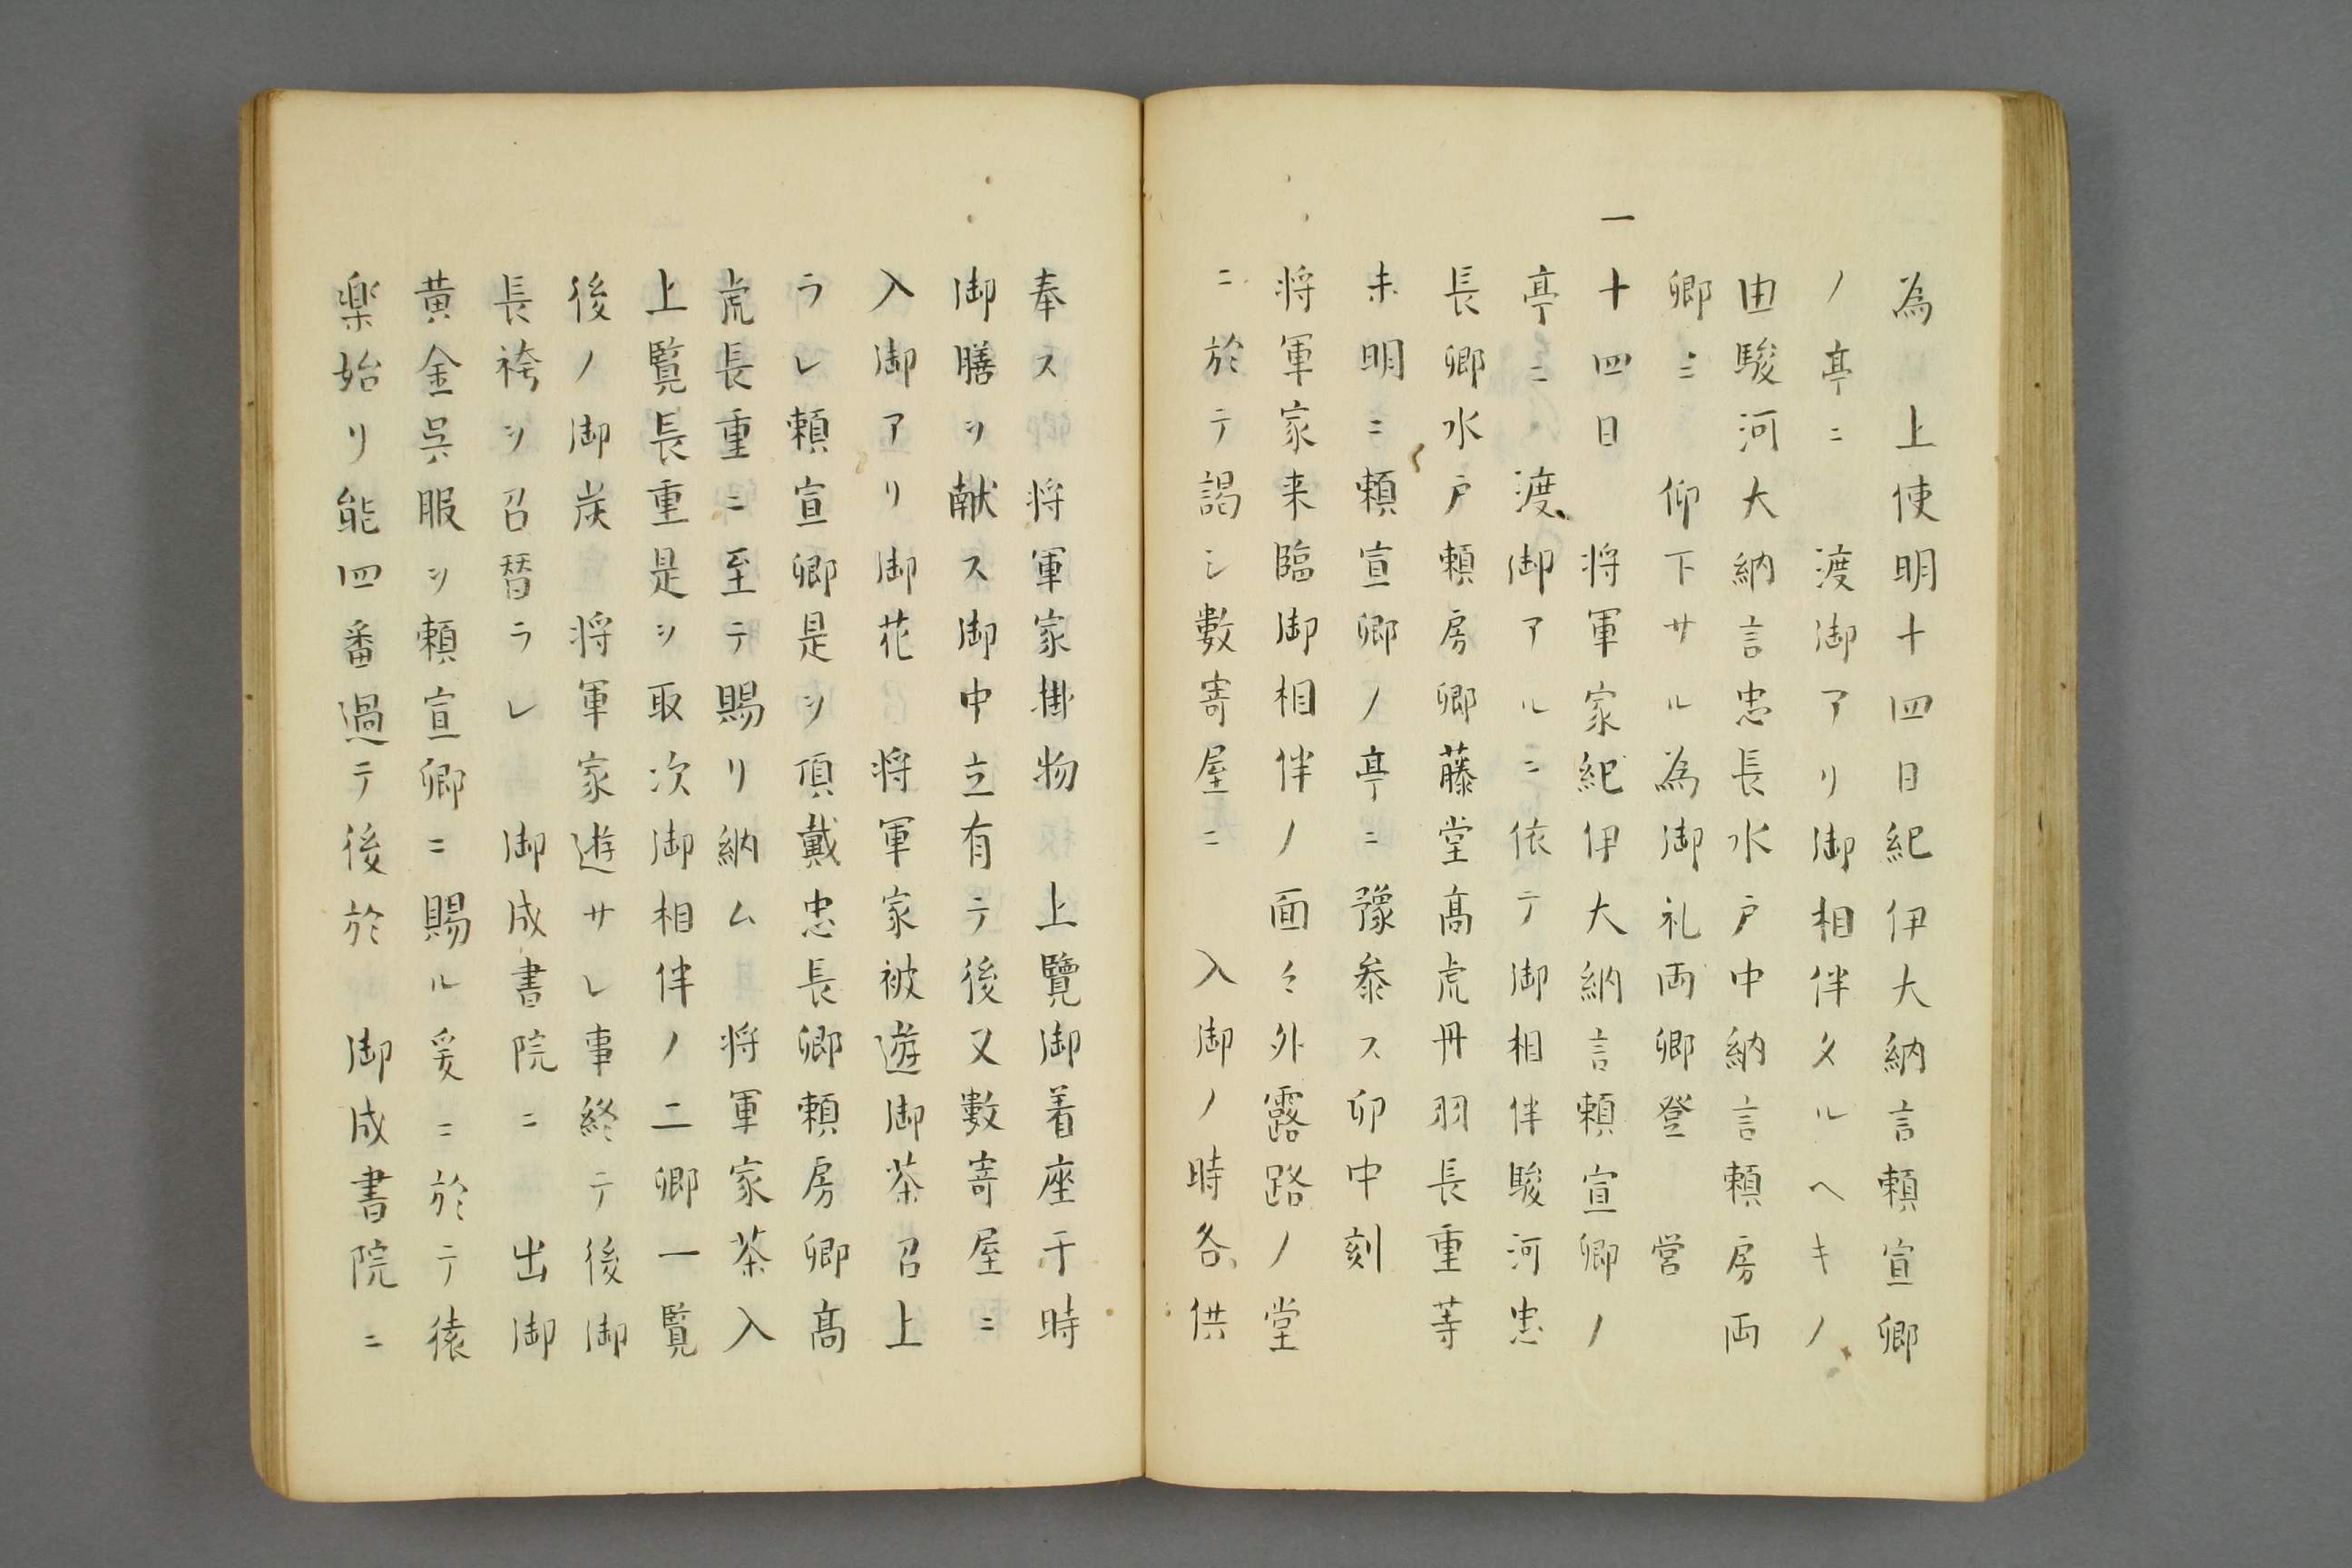 為　上使明十四日紀伊大納言頼宣卿
ノ亭ニ　渡御アリ御相伴タルヘキノ
由駿河大納言忠長水戸中納言頼房両
卿ニ　仰下サル為御礼両卿登　営
一十四日　将軍家紀伊大納言頼宣卿ノ
亭ニ　渡御アルニ依テ御相伴駿河忠
長卿水戸頼房卿藤堂高虎丹羽長重等
未明ニ頼宣卿ノ亭ニ豫参ス卯中刻
将軍家来臨御相伴ノ面々外露路ノ堂
ニ於テ謁シ數寄屋ニ　入御ノ時各供
奉ス　将軍家掛物　上覽御着座于時
御膳ヲ献ス御中立有テ後又數寄屋ニ
入御アリ御花　将軍家被遊御茶召上
ラレ頼宣卿是ヲ頂戴忠長卿頼房卿高
虎長重ニ至テ賜リ納ム　将軍家茶入
上覧長重是ヲ取次御相伴ノ二卿一覧
後ノ御炭　将軍家遊サレ事終テ後御
長袴ヲ召替ラレ　御成書院ニ　出御
黄金呉服ヲ頼宣卿ニ賜ル爰ニ於テ猿
楽始リ能四番過テ後於　御成書院ニ